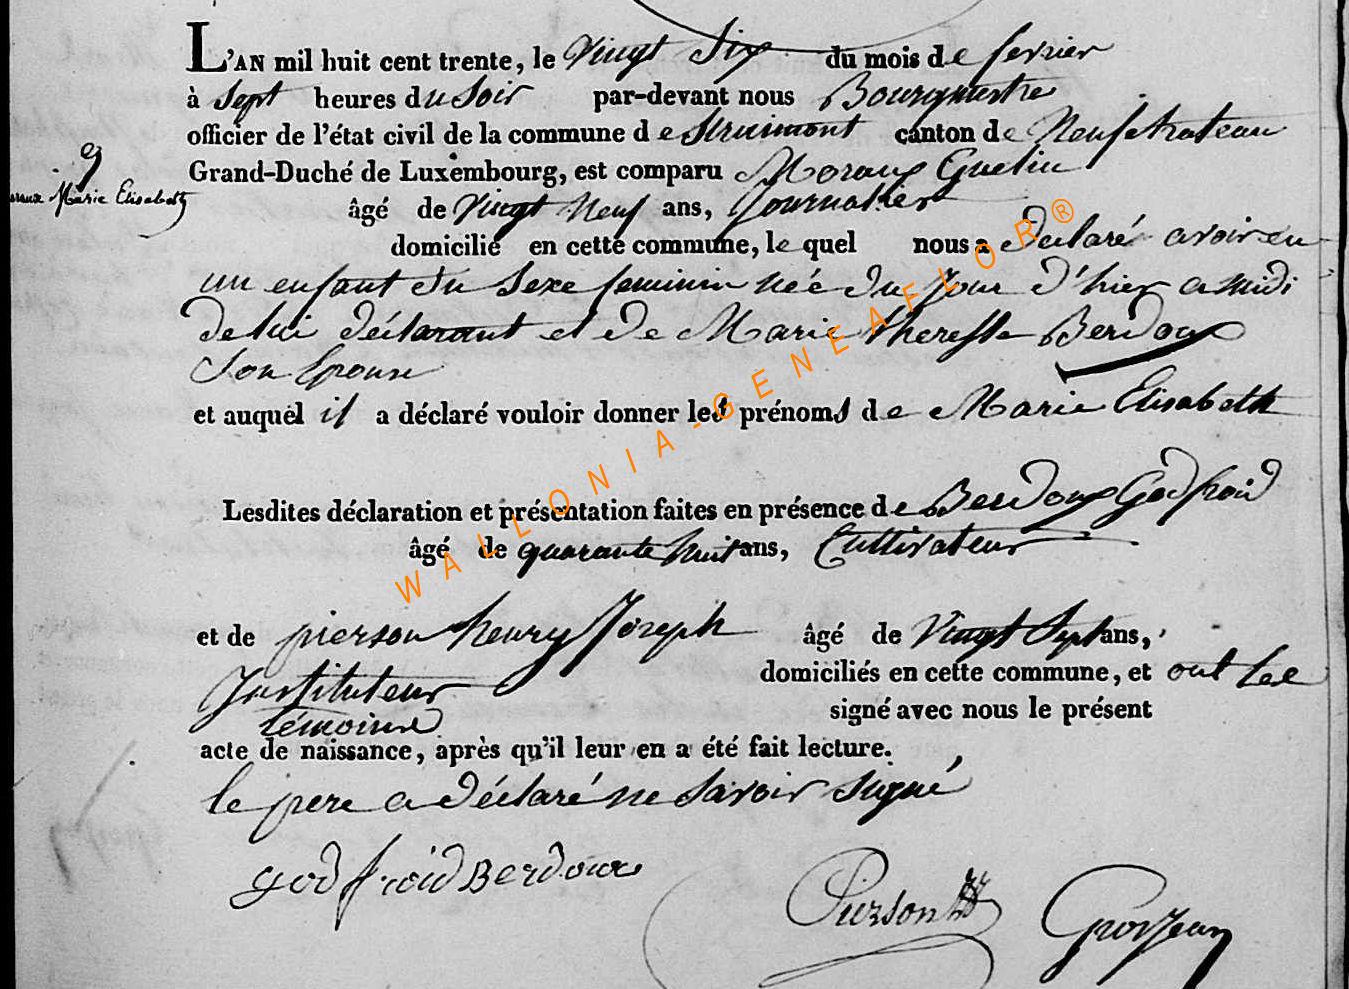 L'AN mil huit cent trente, le Vingt Six du mois de fevrier
à Sept heures du Soir par-devant nous Bourgmestre
officier de l'état civil de la commune de Straimont canton de Neufchateau
Grand-Duché de Luxembourg, est comparu Moraux Guelin
9
Marie Elisabeth
âgé de Vingt Neuf ans, Journalier
domicilié en cette commune, le quel nous a declaré avoir eu
un enfant du Sexe feminin née du jour d'hier a midi
de lui déclarant et de Marie theresse Berdoux
Son Epouse
et auquel il a déclaré vouloir donner les prénoms de Marie Elisabeth
Lesdites déclaration et présentation faites en présence de Berdoux Godfroid
âgé de quarante huit ans, Cultivateur
et de pierson henry Joseph âgé de Vingt Sept ans,
Instituteur domiciliés en cette commune, et ont les
témoins signé avec nous le présent
acte de naissance, après qu'il leur en a été fait lecture.
le pere a déclaré ne Savoir signé
godfroid Berdoux
Pierson
Grosjean
WALLONIA-GENEAFLOR®